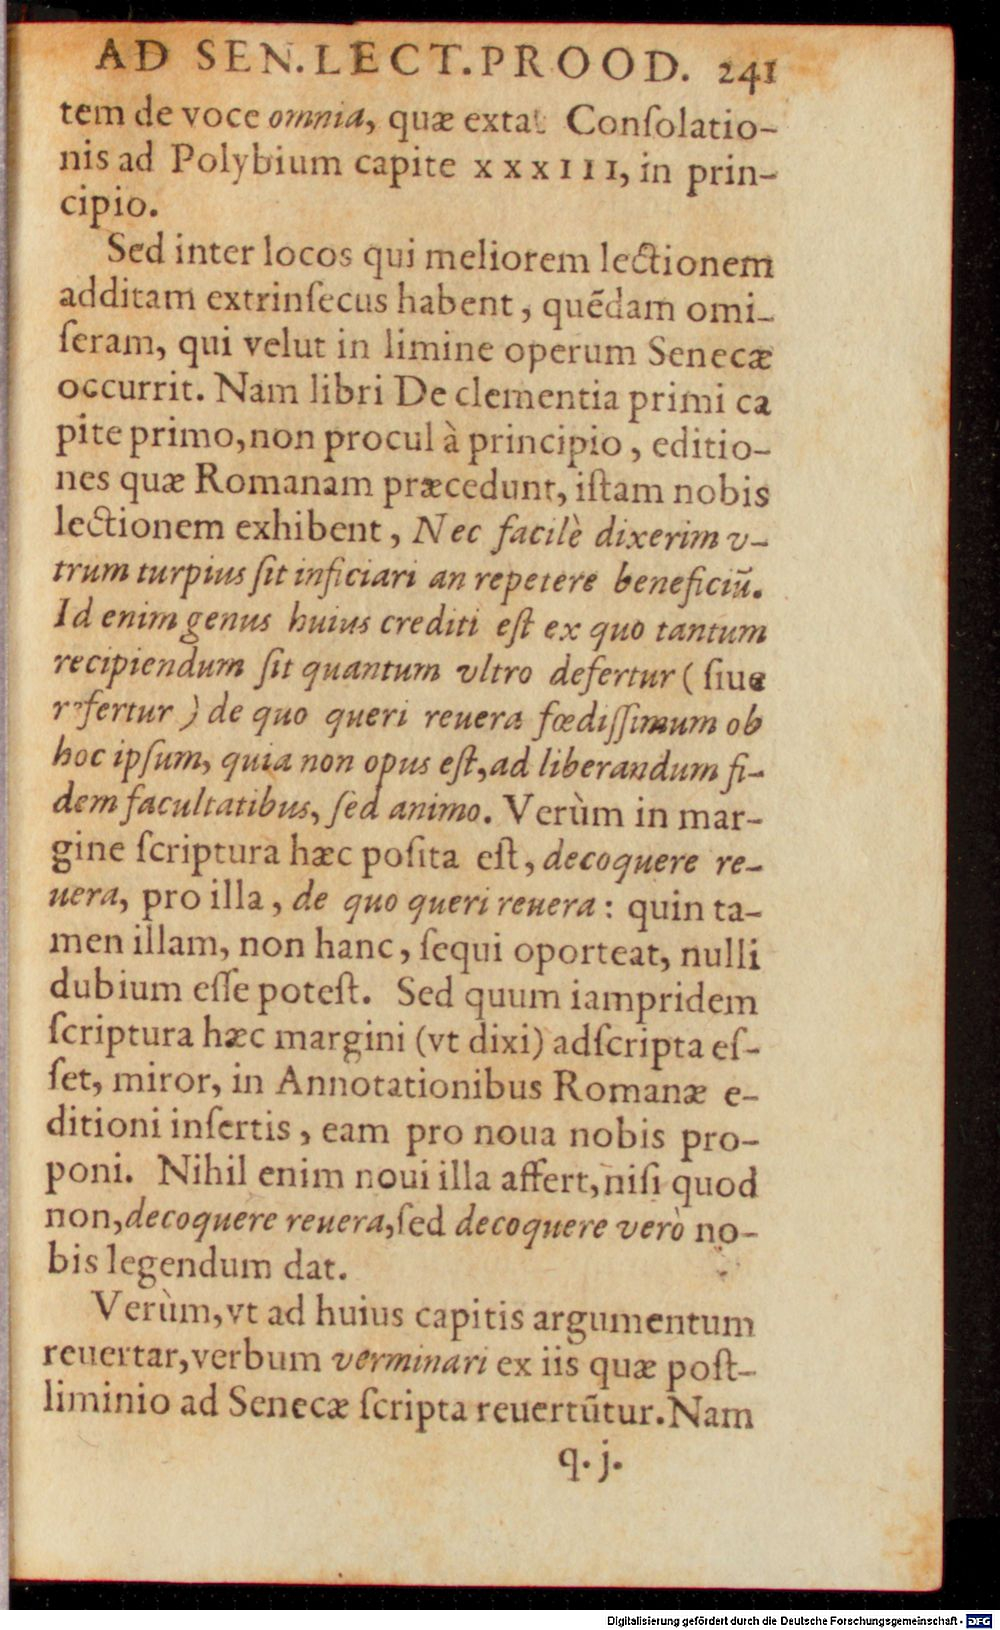 AD SEN.LECT.PROOD. 241
tem de voce omnia, quæ extat Conſolatio-
nis ad Polybium capite xxxIII, in prin-
cipio.
Sed inter locos qui meliorem lectionem
additam extrinſecus habent, quēdam omi-
ſeram, qui velut in limine operum Senecæ
occurrit. Nam libri De clementia primi ca
pite primo, non procul à principio, editio-
nes quæ Romanam præcedunt, iſtam nobis
lectionem exhibent, Nec facilè dixerim v-
trum turpius ſit inficiari an repetere beneficiū.
Id enim genus huius crediti eſt ex quo tantum
recipiendum ſit quantum vltro defertur (ſiue
refertur) de quo queri reuera fœdiſſimum ob
hoc ipſum, quia non opus eſt, ad liberandum fi-
dem facultatibus, ſed animo. Verùm in mar-
gine ſcriptura hæc poſita eſt, decoquere re-
uera, pro illa, de quo queri reuera: quin ta-
men illam, non hanc, ſequi oporteat, nulli
dubium eſſe poteſt. Sed quum iampridem
ſcriptura hæc margini (vt dixi) adſcripta eſ-
ſet, miror, in Annotationibus Romanæ e-
ditioni inſertis, eam pro noua nobis pro-
poni. Nihil enim noui illa affert, niſi quod
non, decoquere reuera, ſed decoquere verò no-
bis legendum dat.
Verùm, vt ad huius capitis argumentum
reuertar, verbum verminari ex iis quæ poſt-
liminio ad Senecæ ſcripta reuertūtur. Nam
q. j.
Digitalisierung gefördert durch die Deutsche Forschungsgemeinschaft - DFG